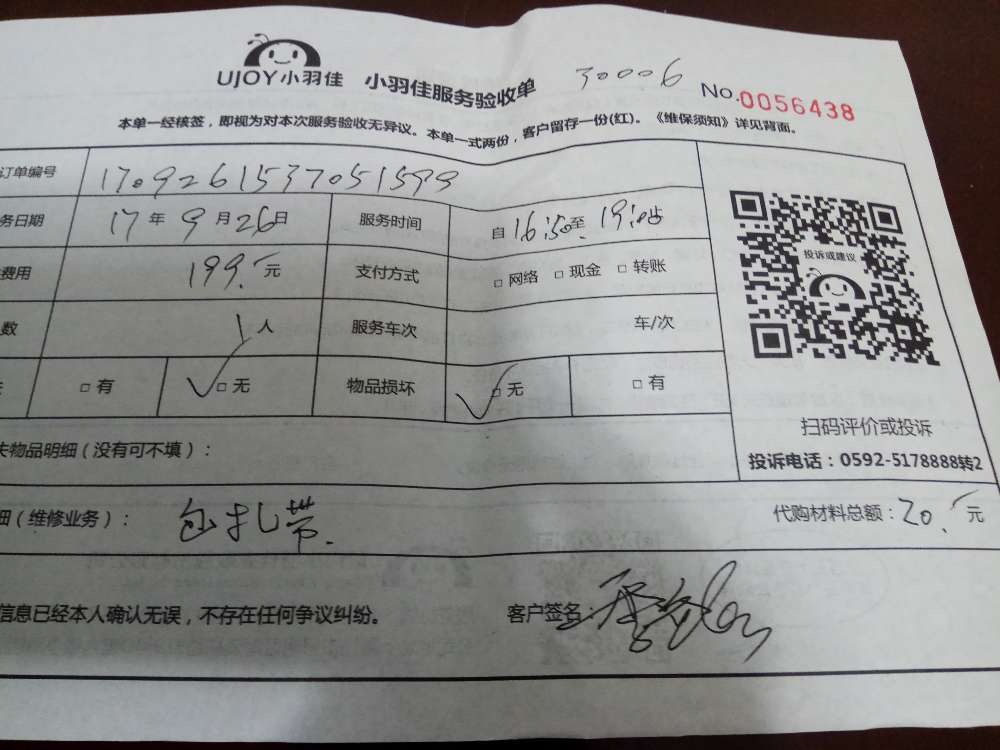 UJOY小羽佳 小羽佳服务验收单 30006 No.0056438
本单一经核签，即视为对本次服务验收无异议。本单一式两份，客户留存一份(红)。《维保须知》详见背面。
订单编号 1709261537051599
务日期 17 年 9 月 26 日 服务时间 自 16:50 至 19:00 止
费用 199. 元 支付方式 □ 网络 □ 现金 □ 转账
数 1 人 服务车次 车/次
□ 有 ✓□ 无 物品损坏 ✓□ 无 □ 有
投诉或建议
扫码评价或投诉
投诉电话：0592-5178888转2
失物品明细（没有可不填）：
细（维修业务）： 包扎带. 代购材料总额：20. 元
信息已经本人确认无误，不存在任何争议纠纷。 客户签名：